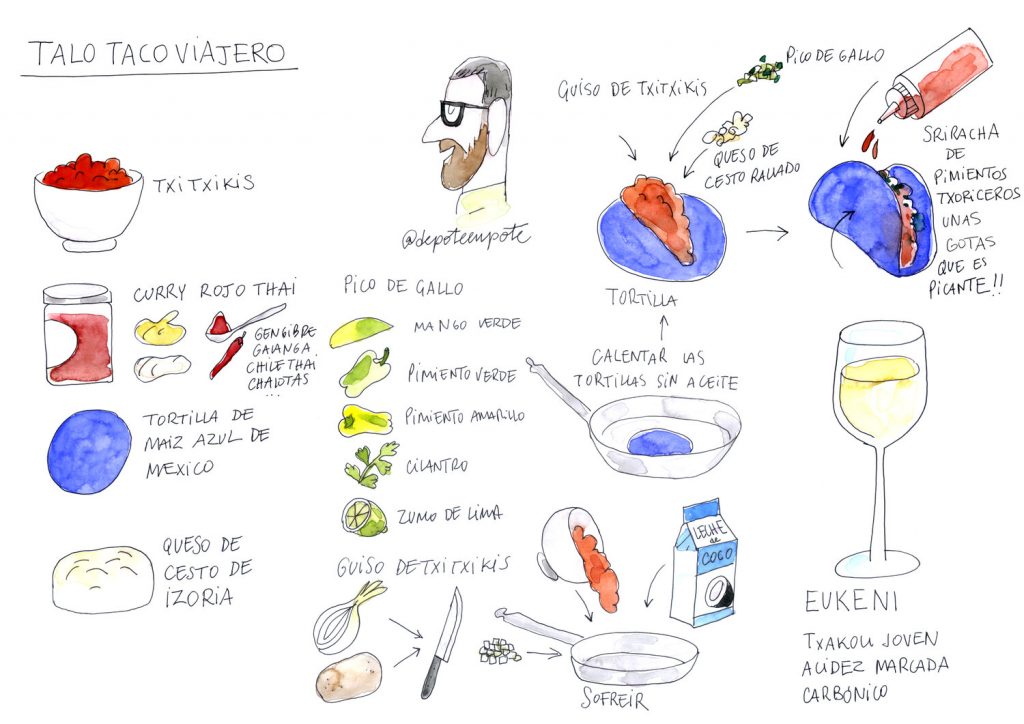 TALO TACO VIAJERO
TXITXIKIS
CURRY ROJO THAI
GENGIBRE
GALANGA
CHILE THAI
CHALOTAS
...
TORTILLA DE
MAIZ AZUL DE
MEXICO
QUESO DE
CESTO DE
IZORIA
@depoteenpote
PICO DE GALLO
MANGO VERDE
PIMIENTO VERDE
PIMIENTO AMARILLO
CILANTRO
ZUMO DE LIMA
GUISO DE TXITXIKIS
SOFREIR
LECHE
de
COCO
CALENTAR LAS
TORTILLAS SIN ACEITE
TORTILLA
GUISO DE TXITXIKIS
PICO DE GALLO
QUESO DE
CESTO RALLADO
SRIRACHA
DE
PIMIENTOS
TXORICEROS
UNAS
GOTAS
QUE ES
PICANTE!!
EUKENI
TXAKOLI JOVEN
ACIDEZ MARCADA
CARBÓNICO